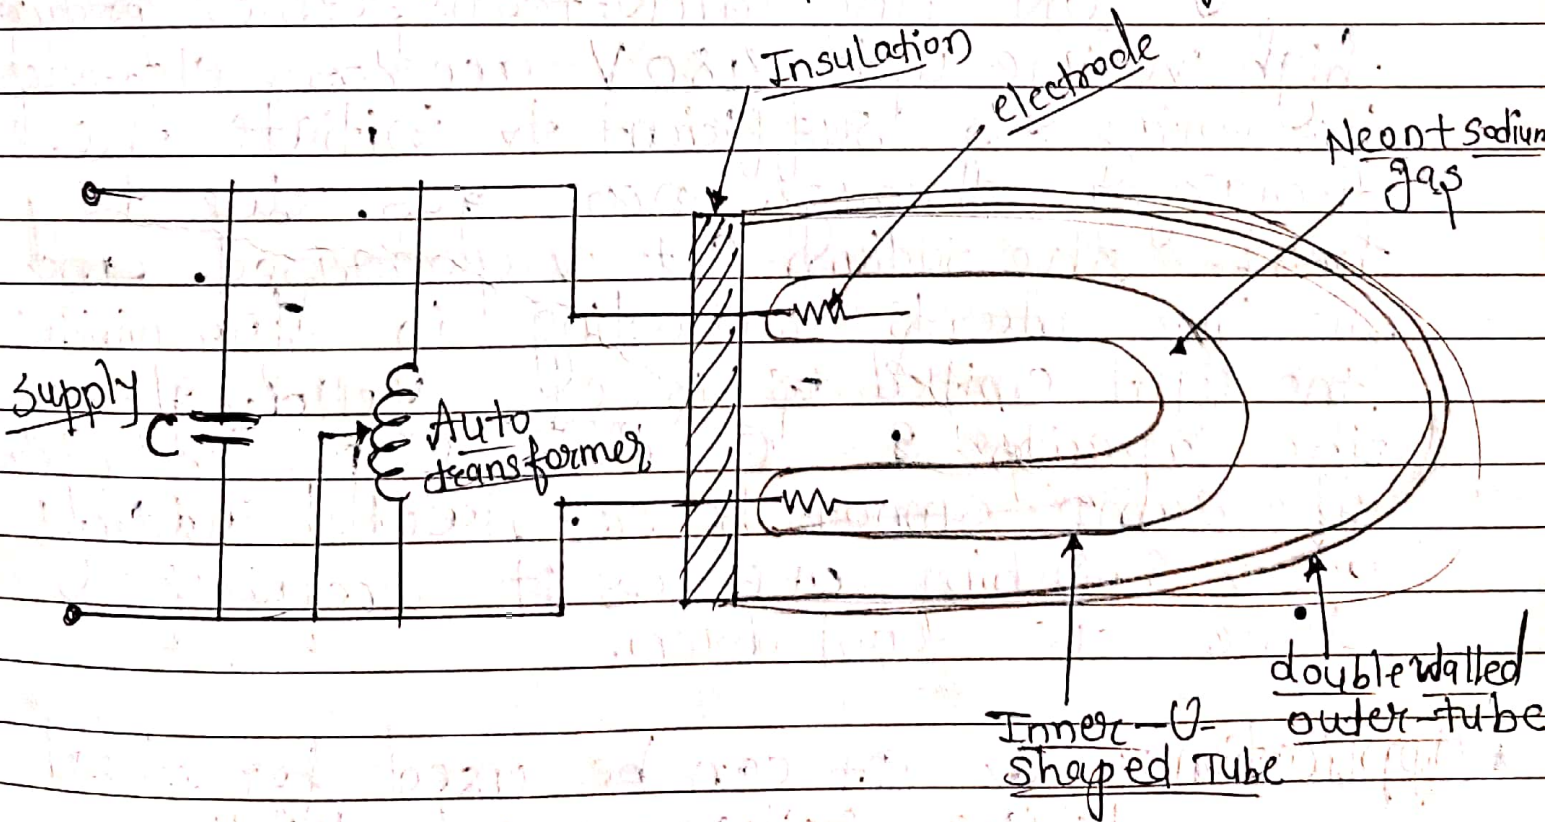 Insulation
electrode
Neon+sodium
gas
supply
C
Auto
transformer
Inner-U-
shaped Tube
double walled
outer-tube